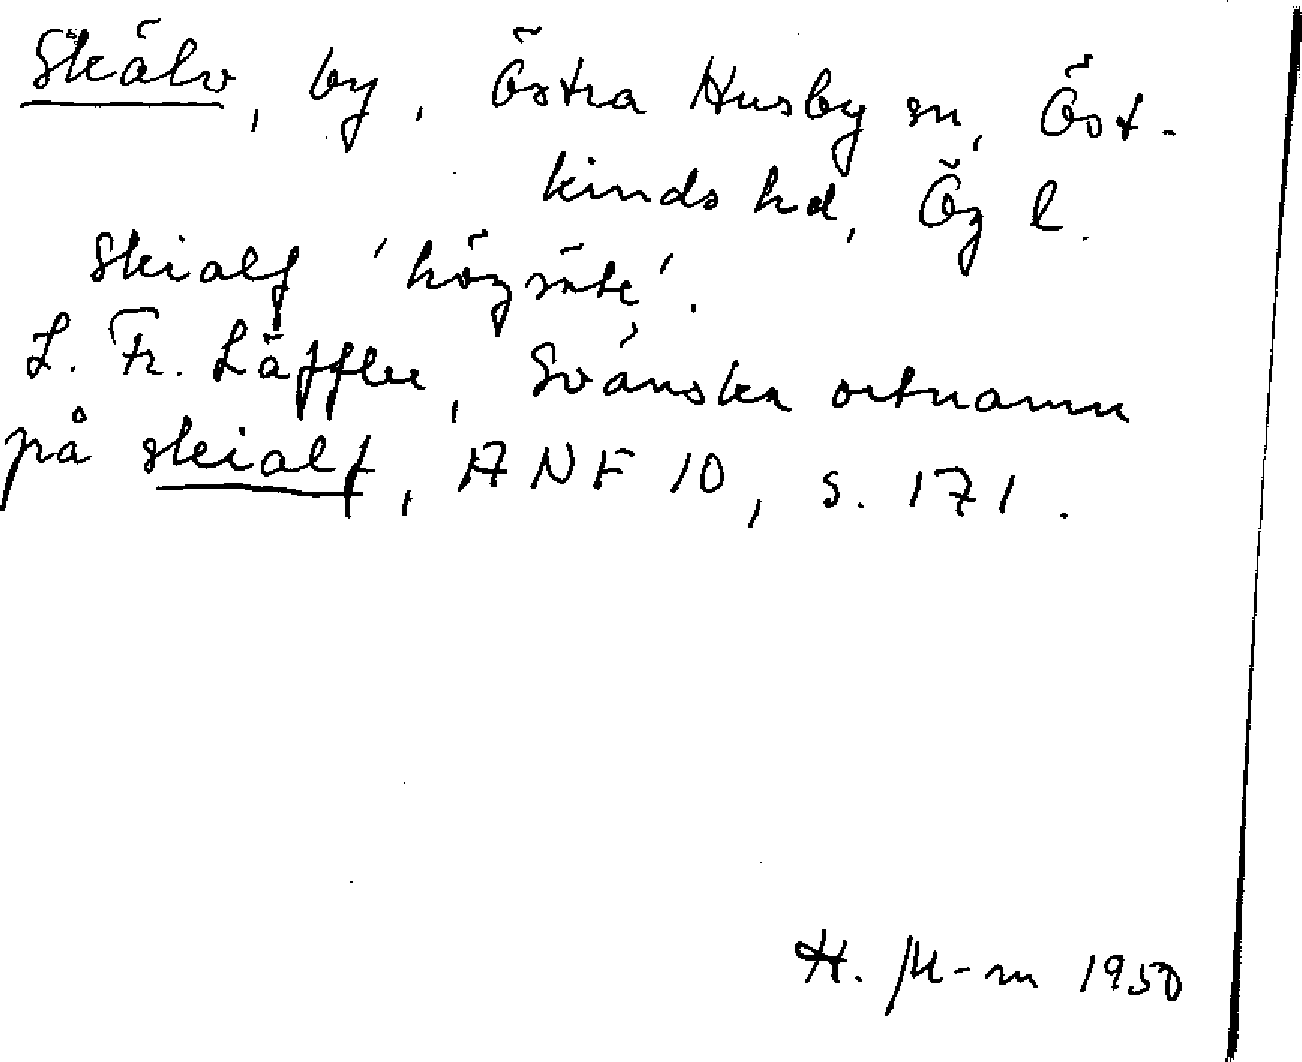 Skälv, by, Östra Husby sn, Öst-
kinds hd, Ög l.
Skialf 'högsäte'.
L. Fr. Läffler, Svänska ortnamn
på skialf, ANF 10, s. 171.
H. M-m 1950